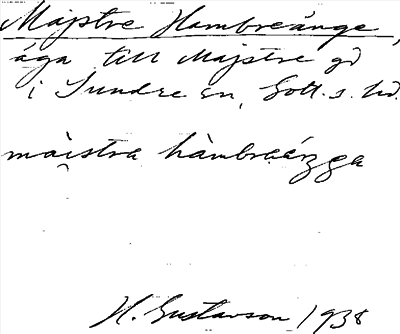 Majstre Hambreänge,
äga till Majstre gd
i Sundre sn, Gotl. s. hd.
màistra hàmbraéŋga
H. Gustavson 1938